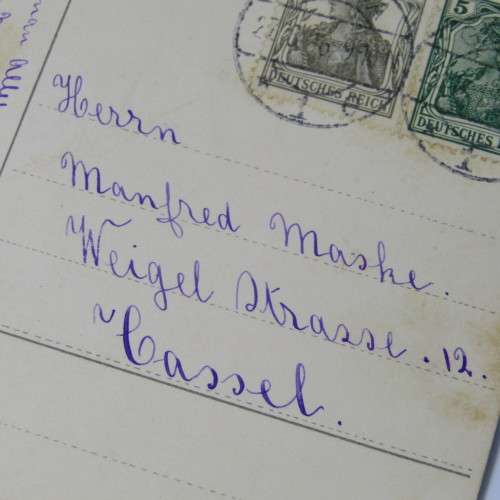 Herrn
Manfred Maske.
Weigel Strasse. 12.
Cassel.
DEUTSCHES REICH
5
DEUTSCHES